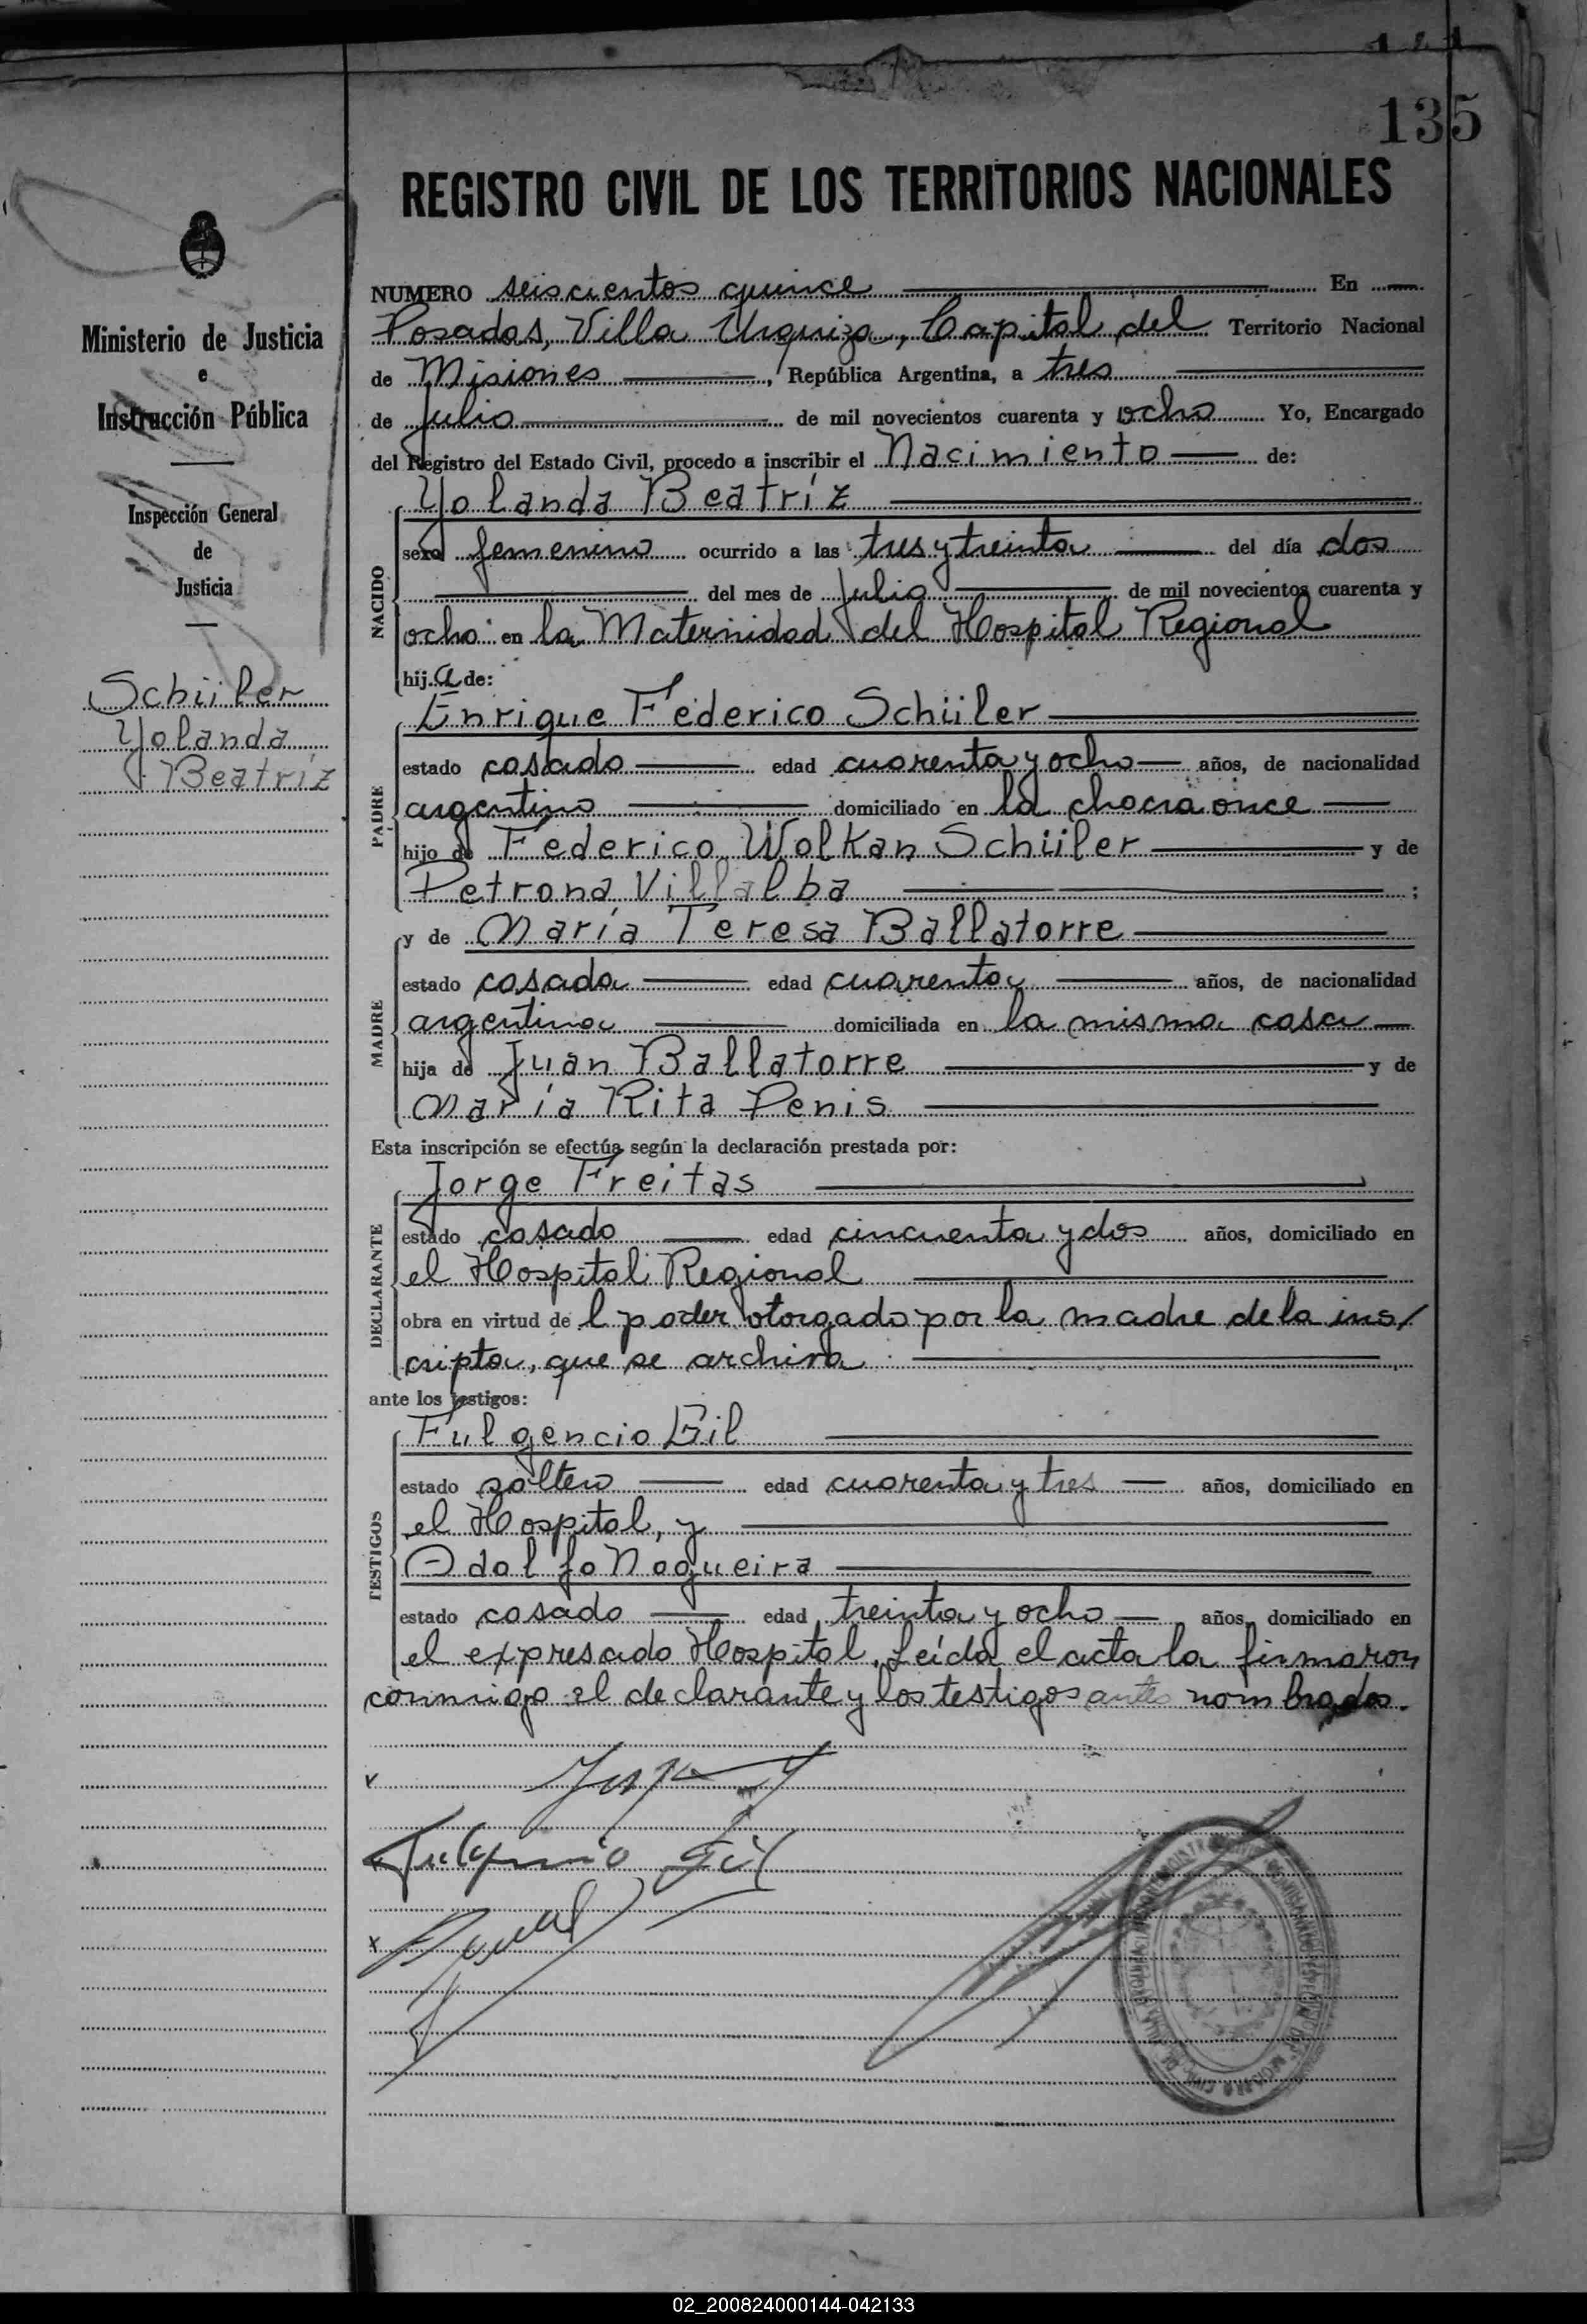 135
REGISTRO CIVIL DE LOS TERRITORIOS NACIONALES
Ministerio de Justicia
e
Instrucción Pública
Inspección General
de
Justicia
Schüler
Yolanda
Beatríz
NUMERO seiscientos quince En
Posadas, Villa Urquiza, Capital del Territorio Nacional
de Misiones, República Argentina, a tres
de Julio de mil novecientos cuarenta y ocho Yo, Encargado
del Registro del Estado Civil, procedo a inscribir el Nacimiento de:
NACIDO
Yolanda Beatríz
sexo femenino ocurrido a las tres y treinta del día dos
del mes de Julio de mil novecientos cuarenta y
ocho en la Maternidad del Hospital Regional
hija de:
PADRE
Enrique Federico Schüler
estado casado edad cuarenta y ocho años, de nacionalidad
argentino domiciliado en la chacra once
hijo de Federico Wolkan Schüler y de
Petrona Villalba ;
MADRE
y de María Teresa Ballatorre
estado casada edad cuarenta años, de nacionalidad
argentina domiciliada en la misma casa
hija de Juan Ballatorre y de
María Rita Penis
Esta inscripción se efectúa según la declaración prestada por:
DECLARANTE
Jorge Freitas
estado casado edad cincuenta y dos años, domiciliado en
el Hospital Regional
obra en virtud del poder otorgado por la madre de la ins/
cripta, que se archiva.
ante los testigos:
TESTIGOS
Fulgencio Gil
estado soltero edad cuarenta y tres años, domiciliado en
el Hospital, y
Adolfo Nogueira
estado casado edad treinta y ocho años, domiciliado en
el expresado Hospital. Leída el acta la firmaron
conmigo el declarante y los testigos antes nombrados.
Fulgencio Gil
02_200824000144-042133